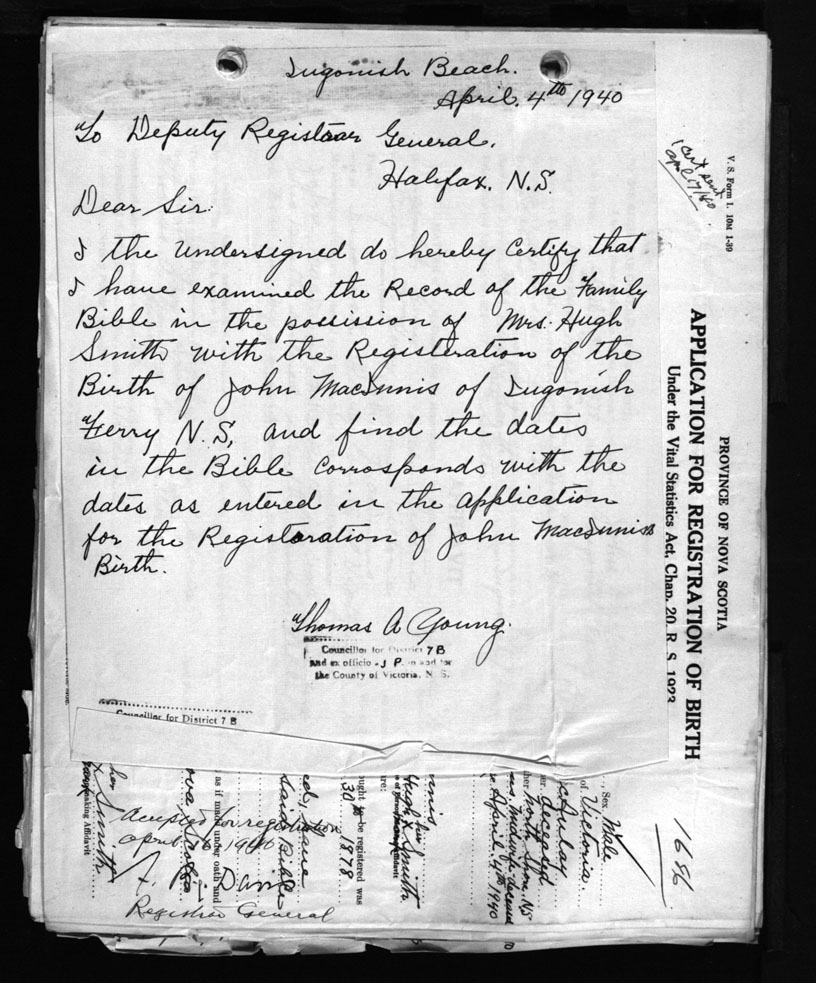 Ingonish Beach.
April. 4th 1940
To Deputy Registrar General.
Halifax. N.S.
Dear Sir:
I the undersigned do hereby Certify that
I have examined the Record of the Family
Bible in the possission of Mrs. Hugh
Smith with the Registeration of the
Birth of John MacInnis of Ingonish
Ferry N.S, and find the dates
in the Bible corrosponds with the
dates as entered in the application
for the Registoration of John MacInniss
Birth.
Thomas A Young.
Councillor for District 7 B
and ex officio J P in and for
the County of Victoria, N. S.
Councillor for District 7 B
V. S. Form 1. 10M 1-39
April 17/40
PROVINCE OF NOVA SCOTIA
APPLICATION FOR REGISTRATION OF BIRTH
Under the Vital Statistics Act, Chap. 20, R. S. 1923
1686
Sex. Male
of Victoria.
cAulay
er. deceased
her North Shore NS
Midwife deceased
re April 4th 1940
nnis
Hugh Smith
are:
ought to be registered was
30 1878
ed, have
said Bible
as if made under oath and
ova Scotia
her
x Smith
making Affidavit
Accepted for registration
April 1940
Davis
Registrar General